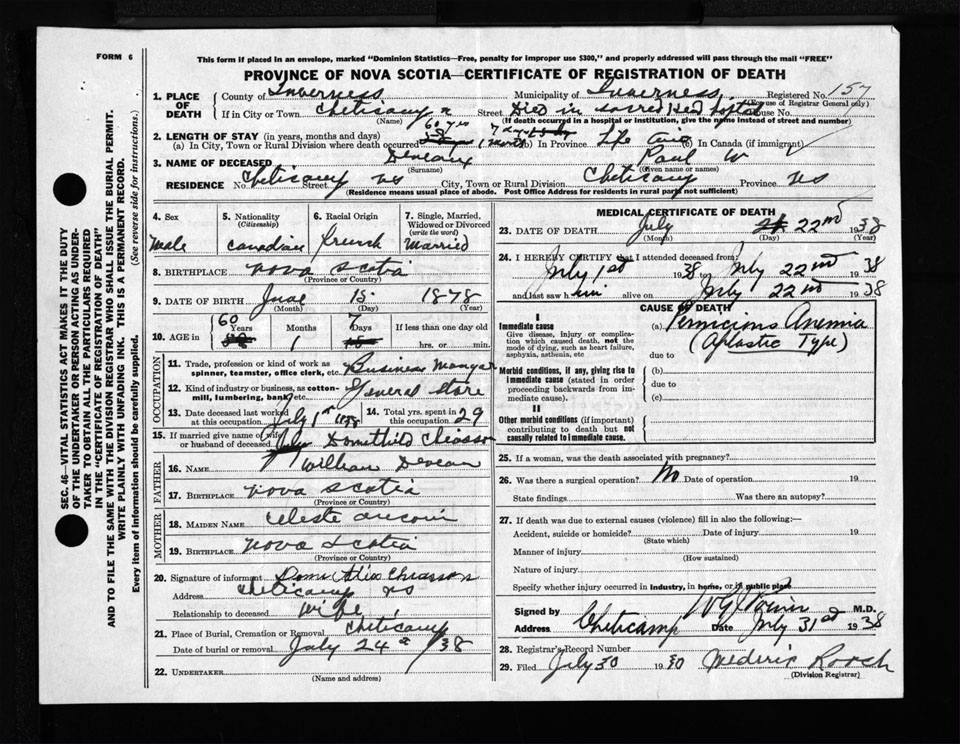 FORM 6
This form if placed in an envelope, marked "Dominion Statistics—Free, penalty for improper use $300," and properly addressed will pass through the mail "FREE"
PROVINCE OF NOVA SCOTIA—CERTIFICATE OF REGISTRATION OF DEATH
1. PLACE OF DEATH
County of Inverness Municipality of Inverness Registered No. 157
(For use of Registrar General only)
If in City or Town Cheticamp Street Died in Sacred House No.
(Name) (If death occurred in a hospital or institution, give the name instead of street and number)
2. LENGTH OF STAY (in years, months and days) 60 yrs 7 days
(a) In City, Town or Rural Division where death occurred 1 month (b) In Province Life (c) In Canada (if immigrant)
3. NAME OF DECEASED Deveaux Paul W
(Surname) (Given name or names)
RESIDENCE No. Cheticamp Street NS City, Town or Rural Division Cheticamp Province NS
(Residence means usual place of abode. Post Office Address for residents in rural parts not sufficient)
4. Sex
Male
5. Nationality
(Citizenship)
Canadian
6. Racial Origin
French
7. Single, Married, Widowed or Divorced
(write the word)
Married
8. BIRTHPLACE Nova Scotia
(Province or Country)
9. DATE OF BIRTH June 15 1878
(Month) (Day) (Year)
10. AGE in 60 Years 1 Months 7 Days If less than one day old
hrs. or min.
OCCUPATION
11. Trade, profession or kind of work as spinner, teamster, office clerk, etc. Business
12. Kind of industry or business, as cotton-mill, lumbering, bank, etc. General store
13. Date deceased last worked at this occupation July 1st 1938
14. Total yrs. spent in this occupation 29
15. If married give name of wife or husband of deceased Domithild Chiasson
FATHER
16. NAME William Deveau
17. BIRTHPLACE Nova Scotia
(Province or Country)
MOTHER
18. MAIDEN NAME Celeste Aucoin
19. BIRTHPLACE Nova Scotia
(Province or Country)
20. Signature of informant Chiasson
Address Cheticamp NS
Relationship to deceased Wife
21. Place of Burial, Cremation or Removal Cheticamp
Date of burial or removal July 24th /38
22. UNDERTAKER
(Name and address)
MEDICAL CERTIFICATE OF DEATH
23. DATE OF DEATH July 22nd 1938
(Month) (Day) (Year)
24. I HEREBY CERTIFY that I attended deceased from:
July 1st 1938 to July 22nd 1938
and last saw him alive on July 22nd 1938
CAUSE OF DEATH
I
Immediate cause
Give disease, injury or complication which caused death, not the mode of dying, such as heart failure, asphyxia, asthenia, etc
(a) Pernicious Anemia
(Aplastic Type)
due to
Morbid conditions, if any, giving rise to immediate cause (stated in order proceeding backwards from immediate cause).
(b)
due to
(c)
II
Other morbid conditions (if important) contributing to death but not causally related to immediate cause.
25. If a woman, was the death associated with pregnancy?
26. Was there a surgical operation? No Date of operation 19
State findings Was there an autopsy?
27. If death was due to external causes (violence) fill in also the following:—
Accident, suicide or homicide? Date of injury 19
(State which)
Manner of injury
(How sustained)
Nature of injury
Specify whether injury occurred in industry, in home, or in public place
Signed by M.D.
Address Cheticamp Date July 31st 1938
28. Registrar's Record Number
29. Filed July 30 1930
(Division Registrar)
SEC. 46—VITAL STATISTICS ACT MAKES IT THE DUTY
OF THE UNDERTAKER OR PERSON ACTING AS UNDER-
TAKER TO OBTAIN ALL THE PARTICULARS REQUIRED
IN THE "CERTIFICATE OF REGISTRATION OF DEATH"
AND TO FILE THE SAME WITH THE DIVISION REGISTRAR WHO SHALL ISSUE THE BURIAL PERMIT.
WRITE PLAINLY WITH UNFADING INK. THIS IS A PERMANENT RECORD.
Every item of information should be carefully supplied. (See reverse side for instructions.)